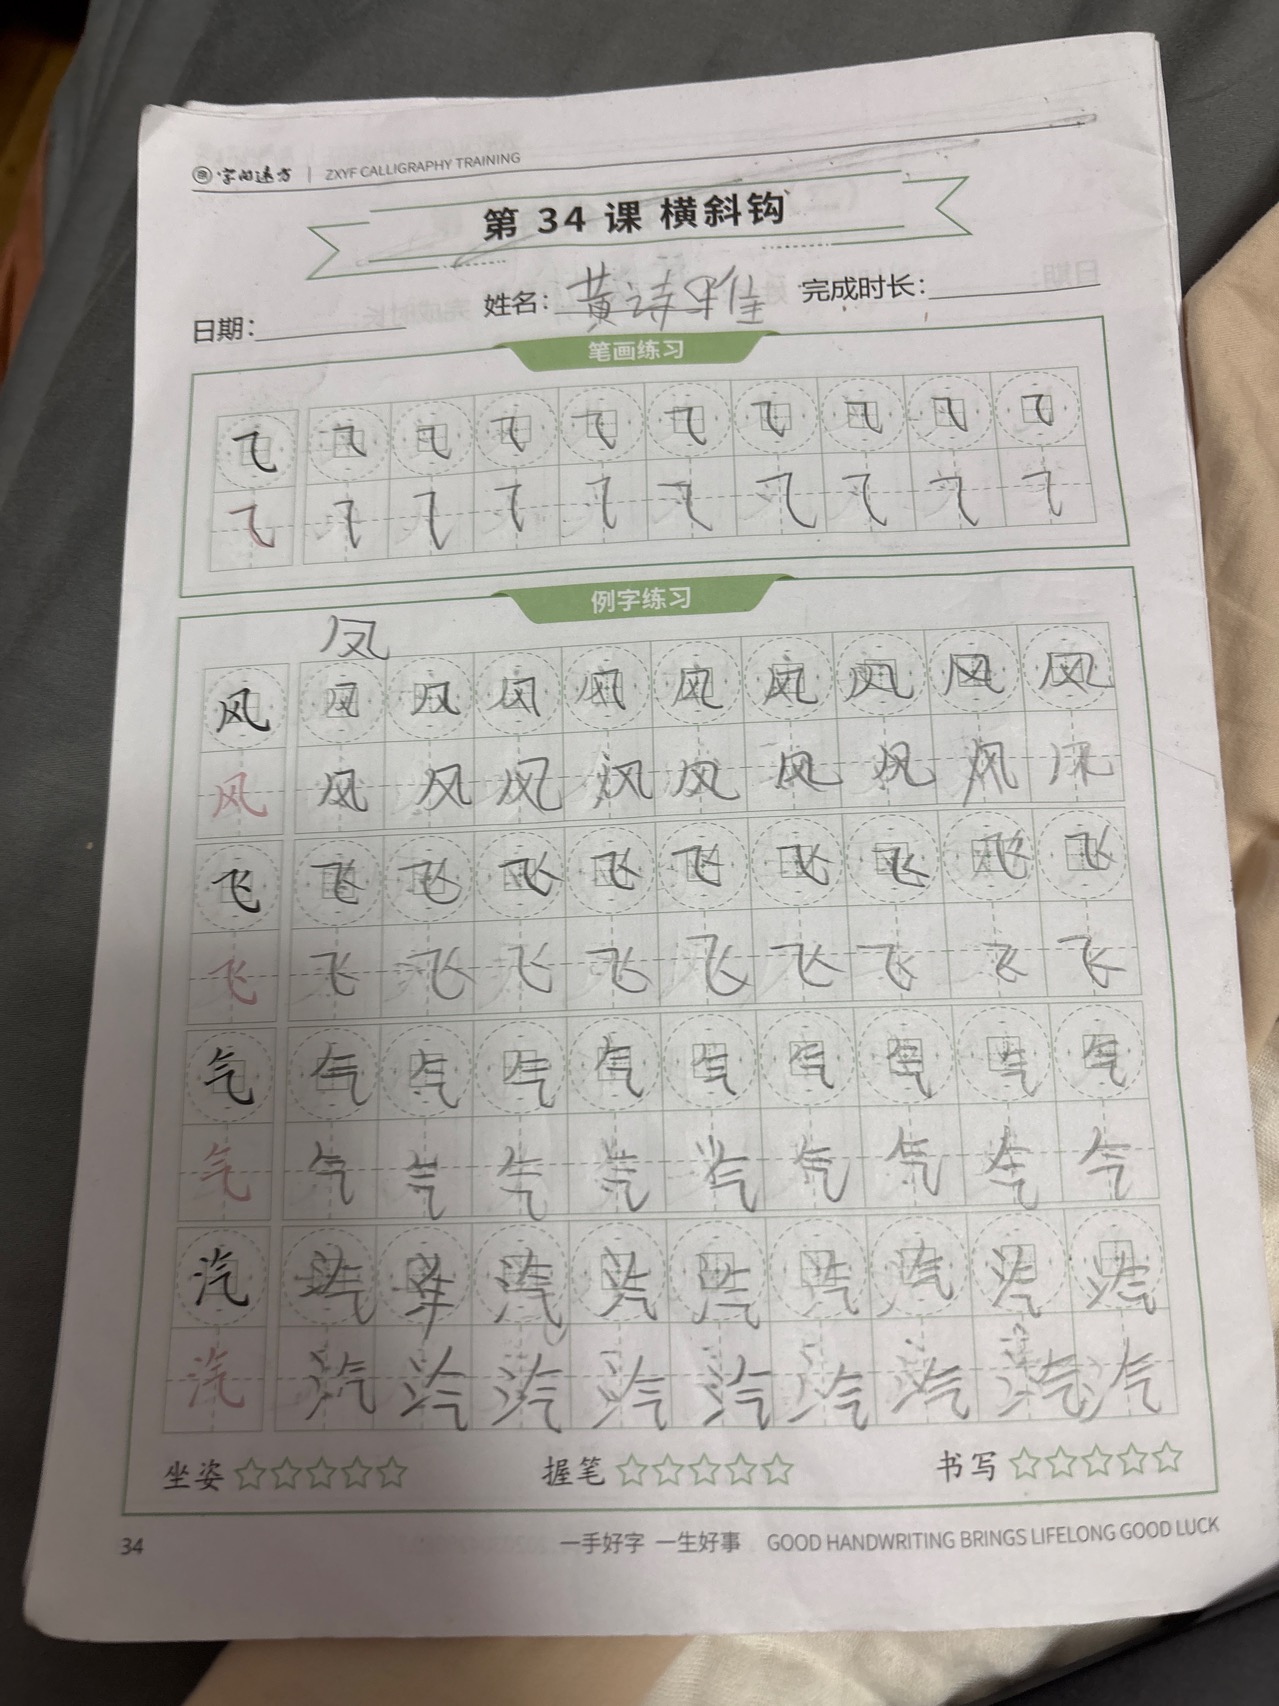 字向速方 | ZXYF CALLIGRAPHY TRAINING
第 34 课 横斜钩
日期： 姓名： 黄诗 完成时长：
笔画练习
⺄ ⺄ ⺄ ⺄ ⺄ ⺄ ⺄ ⺄ ⺄ ⺄
⺄ ⺄ ⺄ ⺄ ⺄ ⺄ ⺄ ⺄ ⺄ ⺄
例字练习
风
风 风 风 风 风 风 风 风 风 风
风 风 风 风 风 风 风 风 风 风
飞 飞 飞 飞 飞 飞 飞 飞 飞 飞
飞 飞 飞 飞 飞 飞 飞 飞 飞 飞
气 气 气 气 气 气 气 气 气 气
气 气 气 气 气 气 气 气 气 气
汽 汽 汽 汽 汽 汽 汽 汽 汽 汽
汽 汽 汽 汽 汽 汽 汽 汽 汽 汽
坐姿 ☆☆☆☆☆ 握笔 ☆☆☆☆☆ 书写 ☆☆☆☆☆
34 一手好字 一生好事 GOOD HANDWRITING BRINGS LIFELONG GOOD LUCK